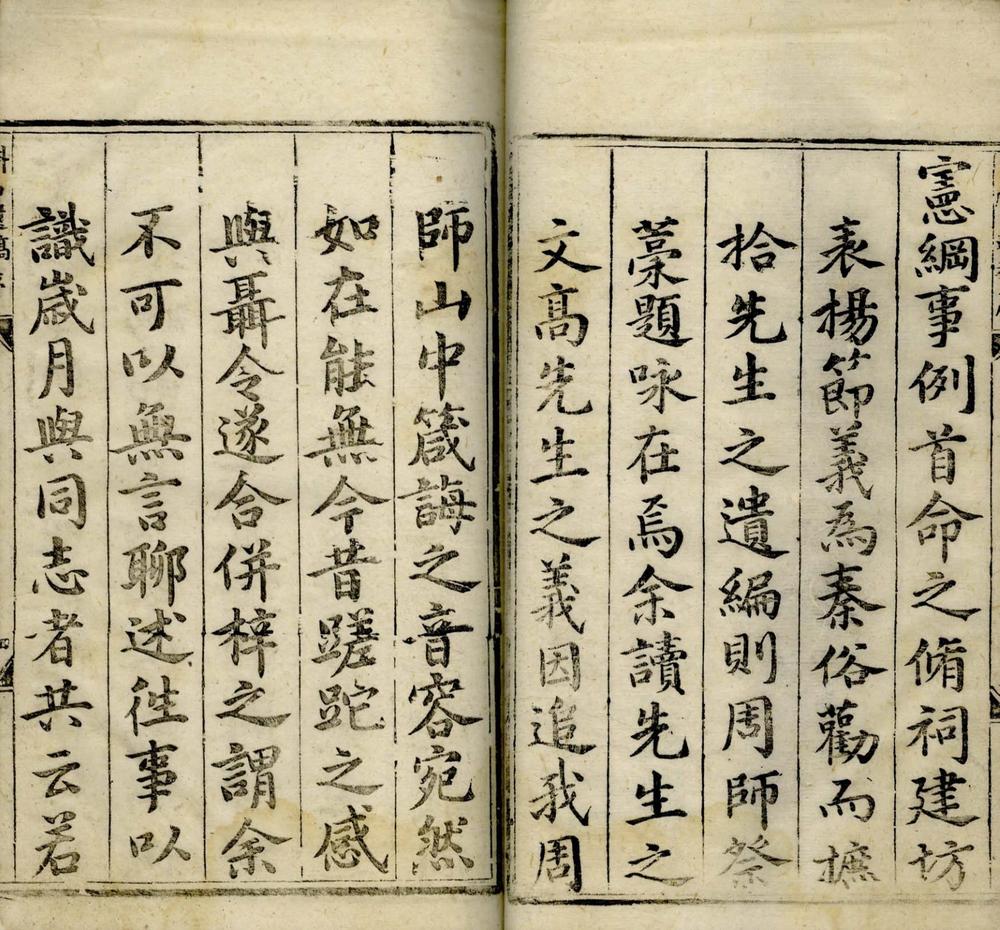 憲綱事例首命之脩祠建坊
表揚節義為秦俗勸而摭
拾先生之遺編則周師祭
藁題咏在焉余讀先生之
文高先生之義因追我周
師山中箴誨之音容宛然
如在能無今昔蹉跎之感
與聶令遂合併梓之謂余
不可以無言聊述徃事以
識歲月與同志者共云若